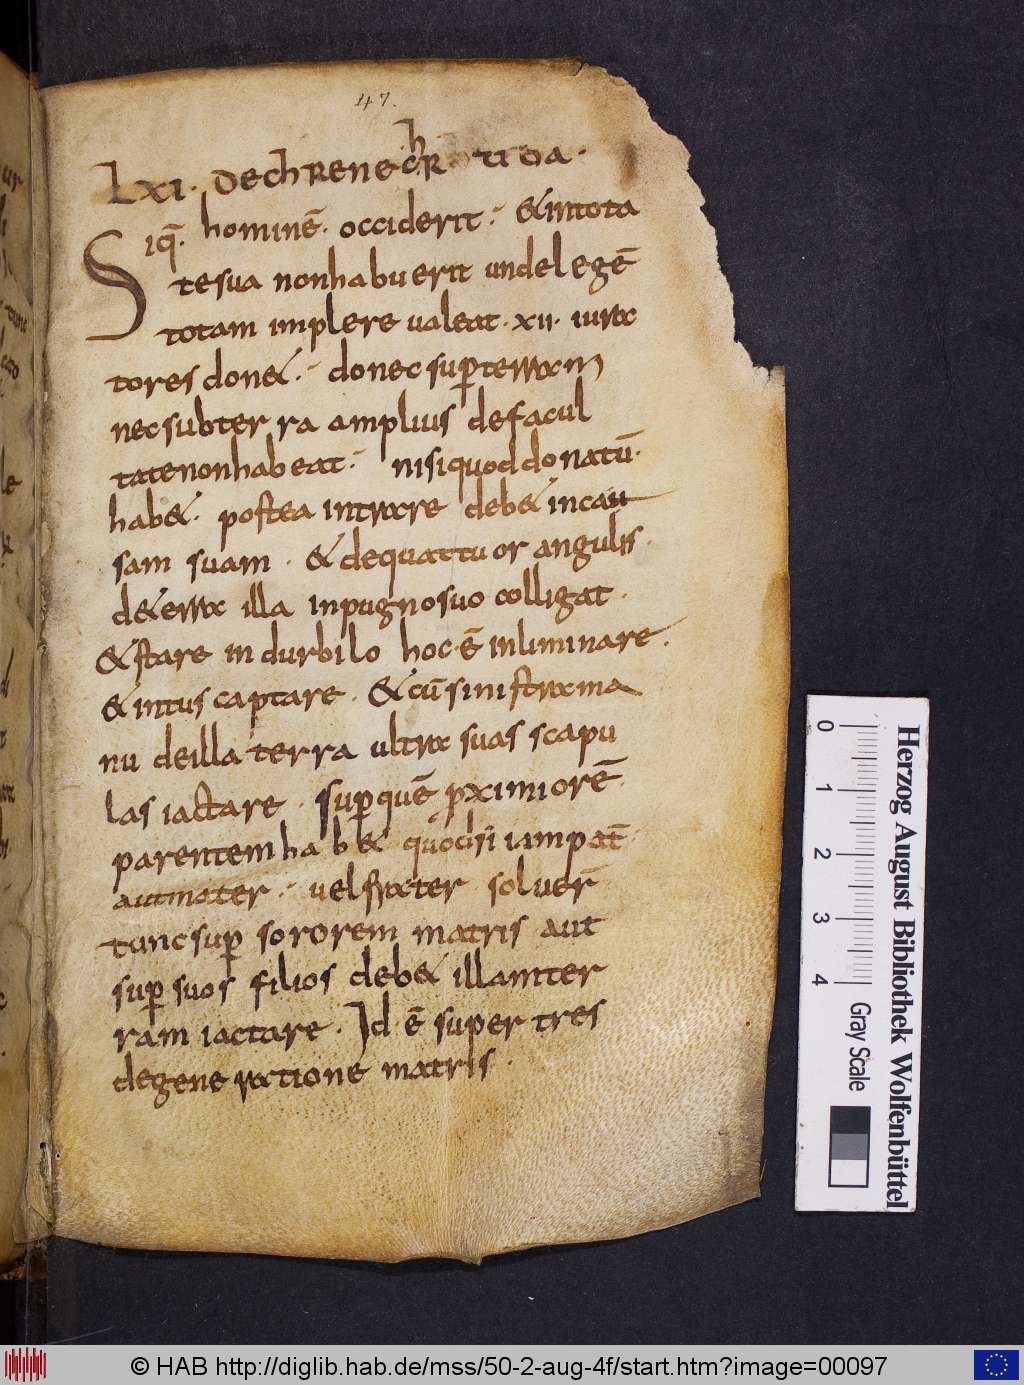 47.
LXI. DechReNechR tiDa.
Siq̄. hominē. occiderit. &intota
tesua nonhabuerit undelegē
totam implere ualeat. xii. iura
tores don&. donec sup̄terram
necsubter ra amplius defacul
tatenonhabeat. nisiquoddonatū.
hab&. postea intrare deb& incau
sam suam. & dequattuor angulis.
d&erra illa inpugnosuo colligat.
&stare in durbilo hoc.ē inliminare.
&intus captare. &cūsinistrama
nu deilla terra ultra suas scapu
las iactare. sup̄quē p̄ximiorē
parentem hab& quodsi iampat̄
autmater. uelfrater soluer̄
tuncsup̄ sororem matris aut
sup̄ suos filios deb& illamter
ram iactare. Id.ē super tres
degeneratione matris.
0 1 2 3 4
Gray Scale
Herzog August Bibliothek Wolfenbüttel
© HAB http://diglib.hab.de/mss/50-2-aug-4f/start.htm?image=00097